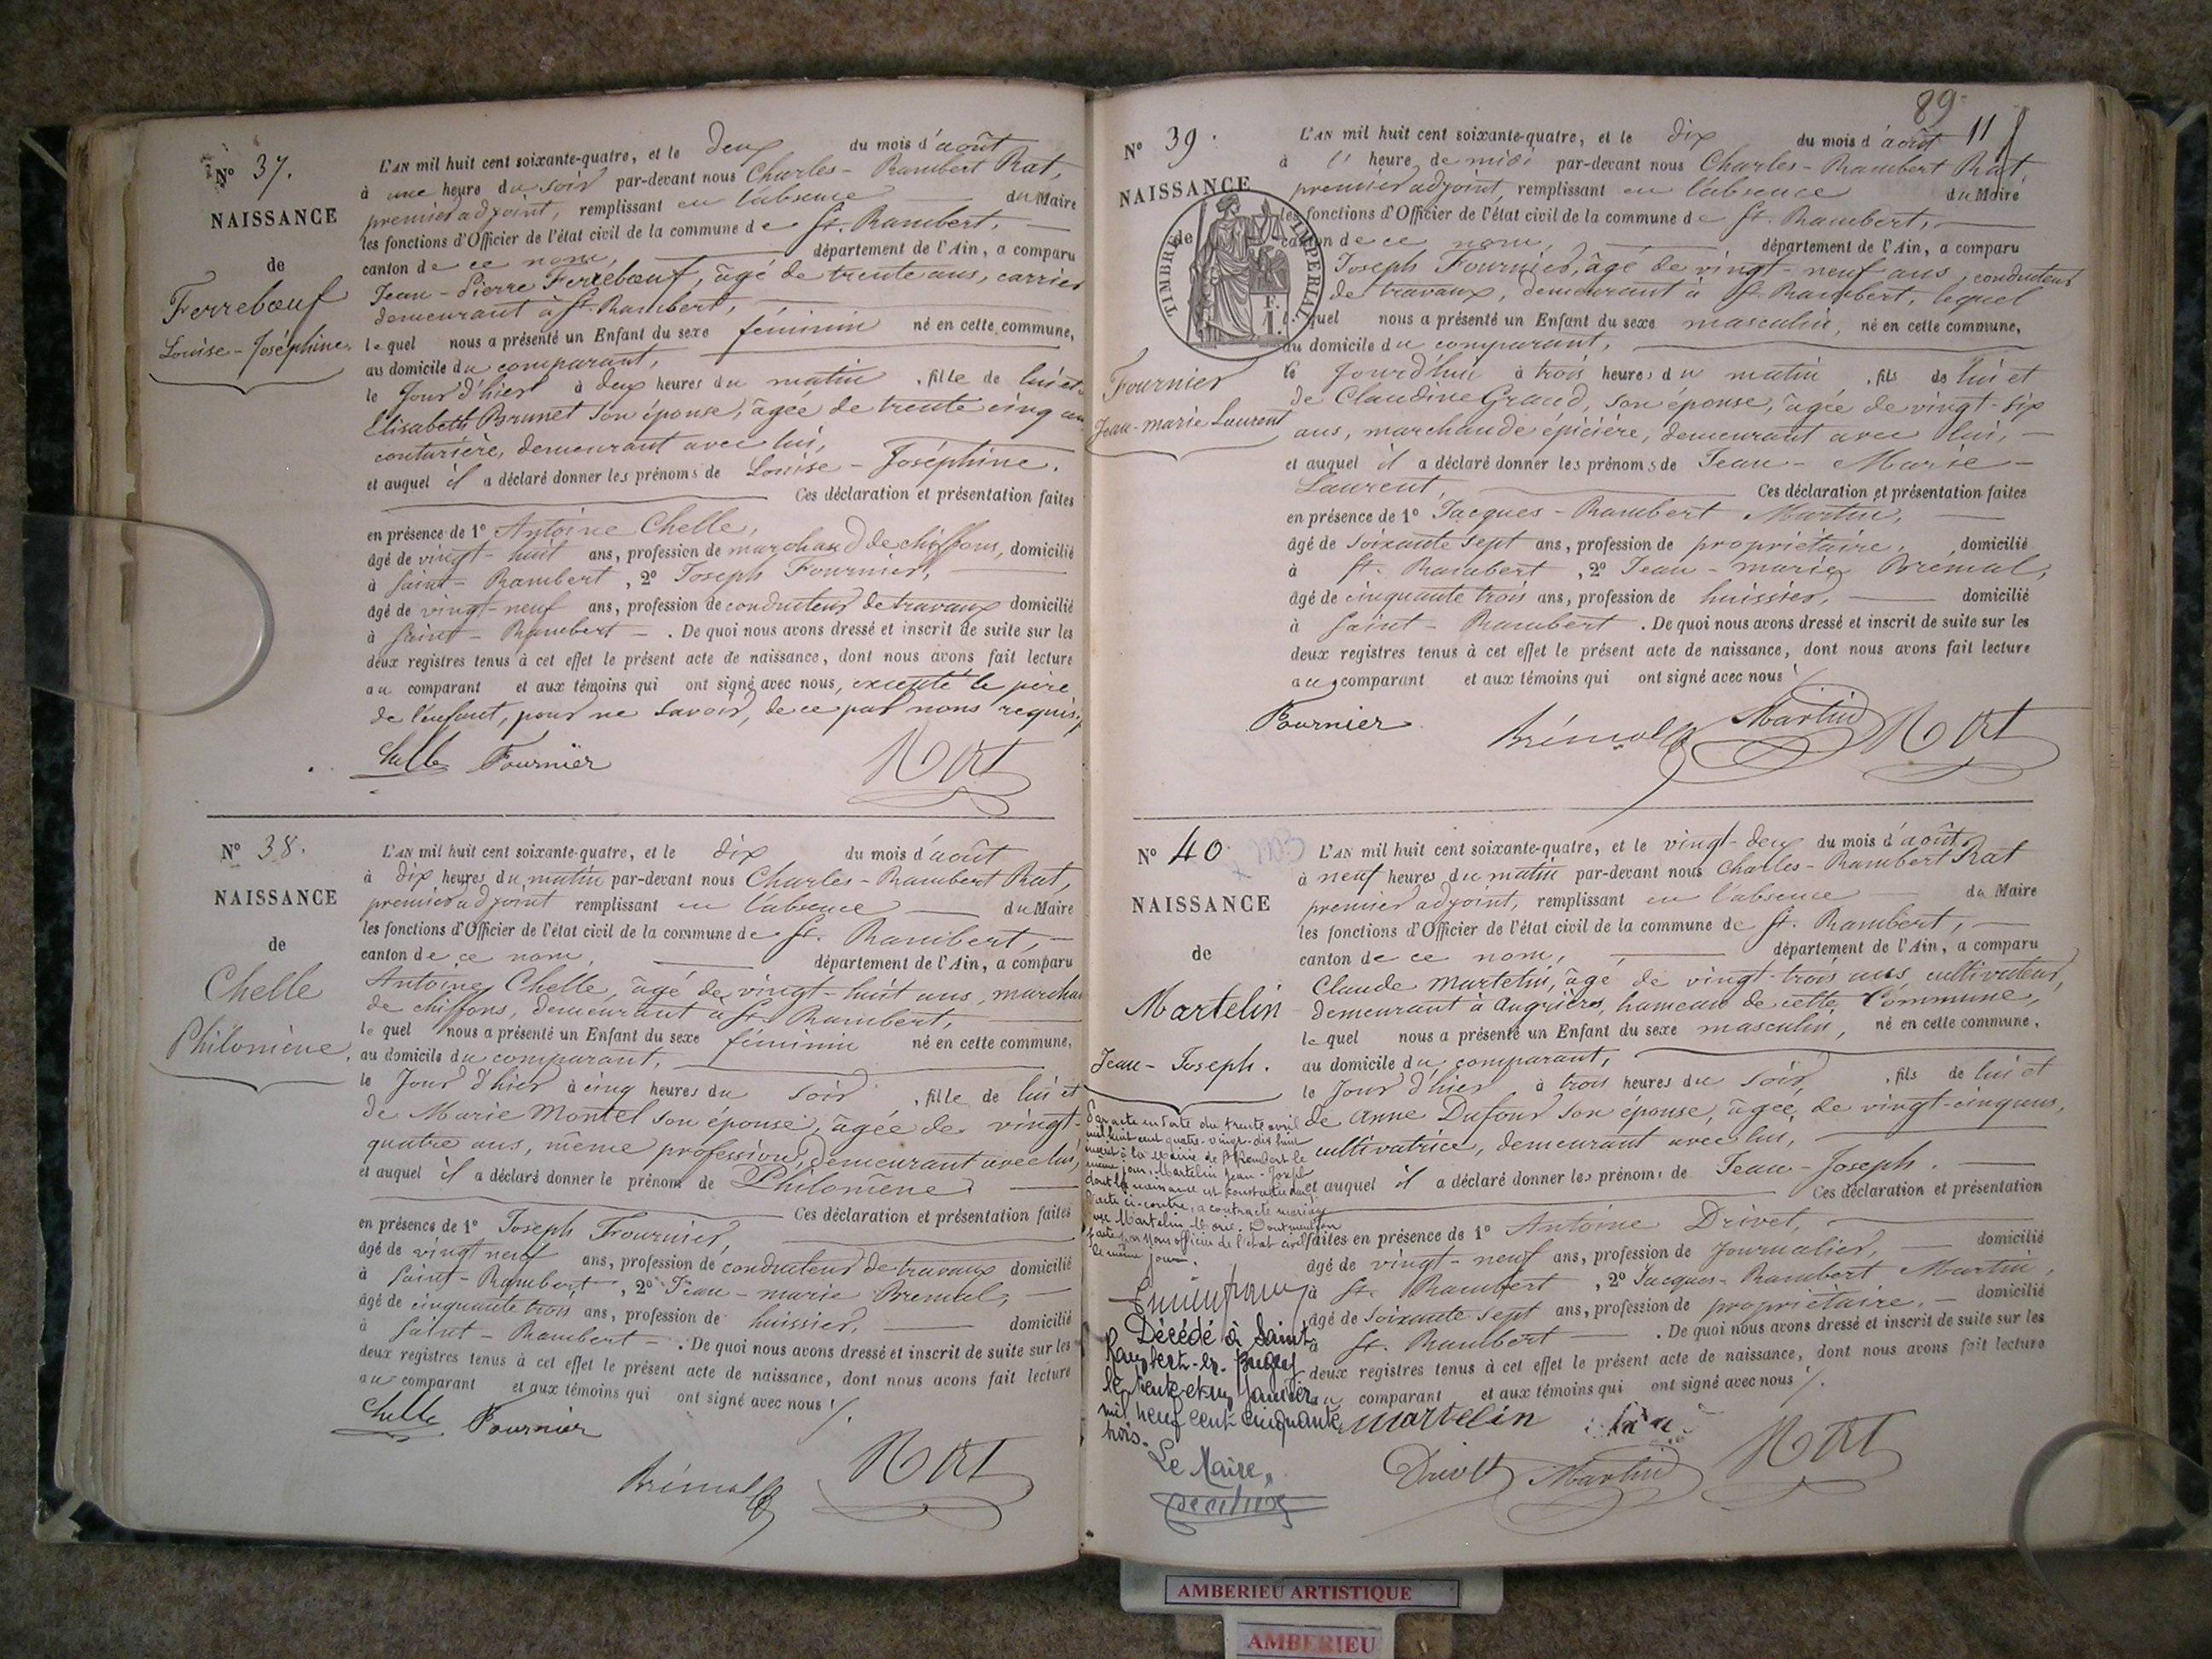 N° 37.
NAISSANCE
de
Ferrebœuf
Louise-Joséphine.
L'AN mil huit cent soixante-quatre, et le deux du mois d'août
à une heure du soir par-devant nous Charles-Rambert Rat,
premier adjoint, remplissant en l'absence du Maire
les fonctions d'Officier de l'état civil de la commune de St. Rambert,
canton de ce nom, département de l'Ain, a comparu
Jean-Pierre Ferrebœuf, âgé de trente ans, carrier
demeurant à St. Rambert,
lequel nous a présenté un Enfant du sexe féminin né en cette commune,
au domicile du comparant,
le jour d'hier à deux heures du matin, fille de lui et
Elisabeth Brunet son épouse, âgée de trente cinq ans
couturière, demeurant avec lui,
et auquel il a déclaré donner les prénoms de Louise-Joséphine.
Ces déclaration et présentation faites
en présence de 1° Antoine Chelle,
âgé de vingt-huit ans, profession de marchand de chiffons, domicilié
à Saint-Rambert, 2° Joseph Fournier,
âgé de vingt-neuf ans, profession de conducteur de travaux domicilié
à Saint-Rambert. De quoi nous avons dressé et inscrit de suite sur les
deux registres tenus à cet effet le présent acte de naissance, dont nous avons fait lecture
au comparant et aux témoins qui ont signé avec nous, excepté le père
de l'enfant, pour ne savoir, de ce par nous requis,
Chelle Fournier Rat
N° 38.
NAISSANCE
de
Chelle
Philomène.
L'AN mil huit cent soixante-quatre, et le dix du mois d'août
à dix heures du matin par-devant nous Charles-Rambert Rat,
premier adjoint remplissant en l'absence du Maire
les fonctions d'Officier de l'état civil de la commune de St. Rambert,
canton de ce nom, département de l'Ain, a comparu
Antoine Chelle, âgé de vingt-huit ans, marchand
de chiffons, demeurant à St. Rambert,
lequel nous a présenté un Enfant du sexe féminin né en cette commune,
au domicile du comparant,
le jour d'hier à cinq heures du soir, fille de lui et
de Marie Montel son épouse, âgée de vingt-
quatre ans, même profession, demeurant avec lui,
et auquel il a déclaré donner le prénom de Philomène.
Ces déclaration et présentation faites
en présence de 1° Joseph Fournier,
âgé de vingt neuf ans, profession de conducteur de travaux domicilié
à Saint-Rambert, 2° Jean-marie Brémal,
âgé de cinquante trois ans, profession de huissier, domicilié
à Saint-Rambert. De quoi nous avons dressé et inscrit de suite sur les
deux registres tenus à cet effet le présent acte de naissance, dont nous avons fait lecture
au comparant et aux témoins qui ont signé avec nous /.
Chelle Fournier
Brémal Rat
89
11
N° 39.
NAISSANCE
de
TIMBRE IMPERIAL
F. I.
Fournier
Jean-marie Laurent
L'AN mil huit cent soixante-quatre, et le dix du mois d'août
à l'heure de midi par-devant nous Charles-Rambert Rat,
premier adjoint, remplissant en l'absence du Maire
les fonctions d'Officier de l'état civil de la commune de St. Rambert,
canton de ce nom, département de l'Ain, a comparu
Joseph Fournier, âgé de vingt-neuf ans, conducteur
de travaux, demeurant à St. Rambert, lequel
lequel nous a présenté un Enfant du sexe masculin, né en cette commune,
au domicile du comparant,
le jourd'hui à trois heures du matin, fils de lui et
de Claudine Graud, son épouse, âgée de vingt-six
ans, marchande épicière, demeurant avec lui,
et auquel il a déclaré donner les prénoms de Jean-Marie-
Laurent, Ces déclaration et présentation faites
en présence de 1° Jacques-Rambert Martin,
âgé de soixante sept ans, profession de propriétaire, domicilié
à St. Rambert, 2° Jean-marie Brémal,
âgé de cinquante trois ans, profession de huissier, domicilié
à Saint-Rambert. De quoi nous avons dressé et inscrit de suite sur les
deux registres tenus à cet effet le présent acte de naissance, dont nous avons fait lecture
au comparant et aux témoins qui ont signé avec nous
Fournier Brémal Martin Rat
N° 40
NAISSANCE
de
Martelin
Jean-Joseph.
L'AN mil huit cent soixante-quatre, et le vingt-deux du mois d'août
à neuf heures du matin par-devant nous Charles-Rambert Rat
premier adjoint, remplissant en l'absence du Maire
les fonctions d'Officier de l'état civil de la commune de St. Rambert,
canton de ce nom, département de l'Ain, a comparu
Claude Martelin, âgé de vingt-trois ans, cultivateur,
demeurant à Angrières, hameau de cette Commune,
lequel nous a présenté un Enfant du sexe masculin, né en cette commune,
au domicile du comparant,
le jour d'hier à trois heures du soir, fils de lui et
de Anne Dufour son épouse, âgée de vingt-cinq ans,
cultivatrice, demeurant avec lui,
et auquel il a déclaré donner les prénoms de Jean-Joseph.
Ces déclaration et présentation
faites en présence de 1° Antoine Drivet, domicilié
âgé de vingt-neuf ans, profession de journalier,
à St. Rambert, 2° Jacques-Rambert Martin,
âgé de soixante sept ans, profession de propriétaire, domicilié
à St. Rambert. De quoi nous avons dressé et inscrit de suite sur les
deux registres tenus à cet effet le présent acte de naissance, dont nous avons fait lecture
au comparant et aux témoins qui ont signé avec nous /.
martelin
Drivet Martin Rat
Par acte en date du trente avril
mil huit cent quatre-vingt-dix huit
à la Mairie de St Rambert le
même jour, Martelin Jean-Joseph
dont la naissance est constatée dans
l'acte ci-contre, a contracté mariage
avec Martelin Marie. Dont mention
faite par nous officier de l'état civil
le même jour.
Décédé à Saint
Rambert-en-Bugey
le trente et un Janvier
mil neuf cent cinquante
trois.
Le Maire,
AMBERIEU ARTISTIQUE
AMBERIEU